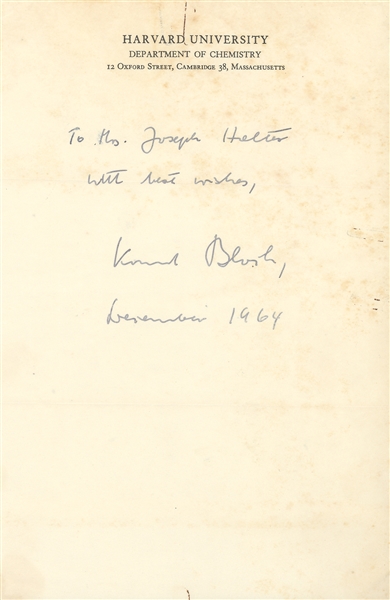 HARVARD UNIVERSITY
DEPARTMENT OF CHEMISTRY
12 Oxford Street, Cambridge 38, Massachusetts
To Joseph
with best wishes,
Konrad Bloch,
December 1964